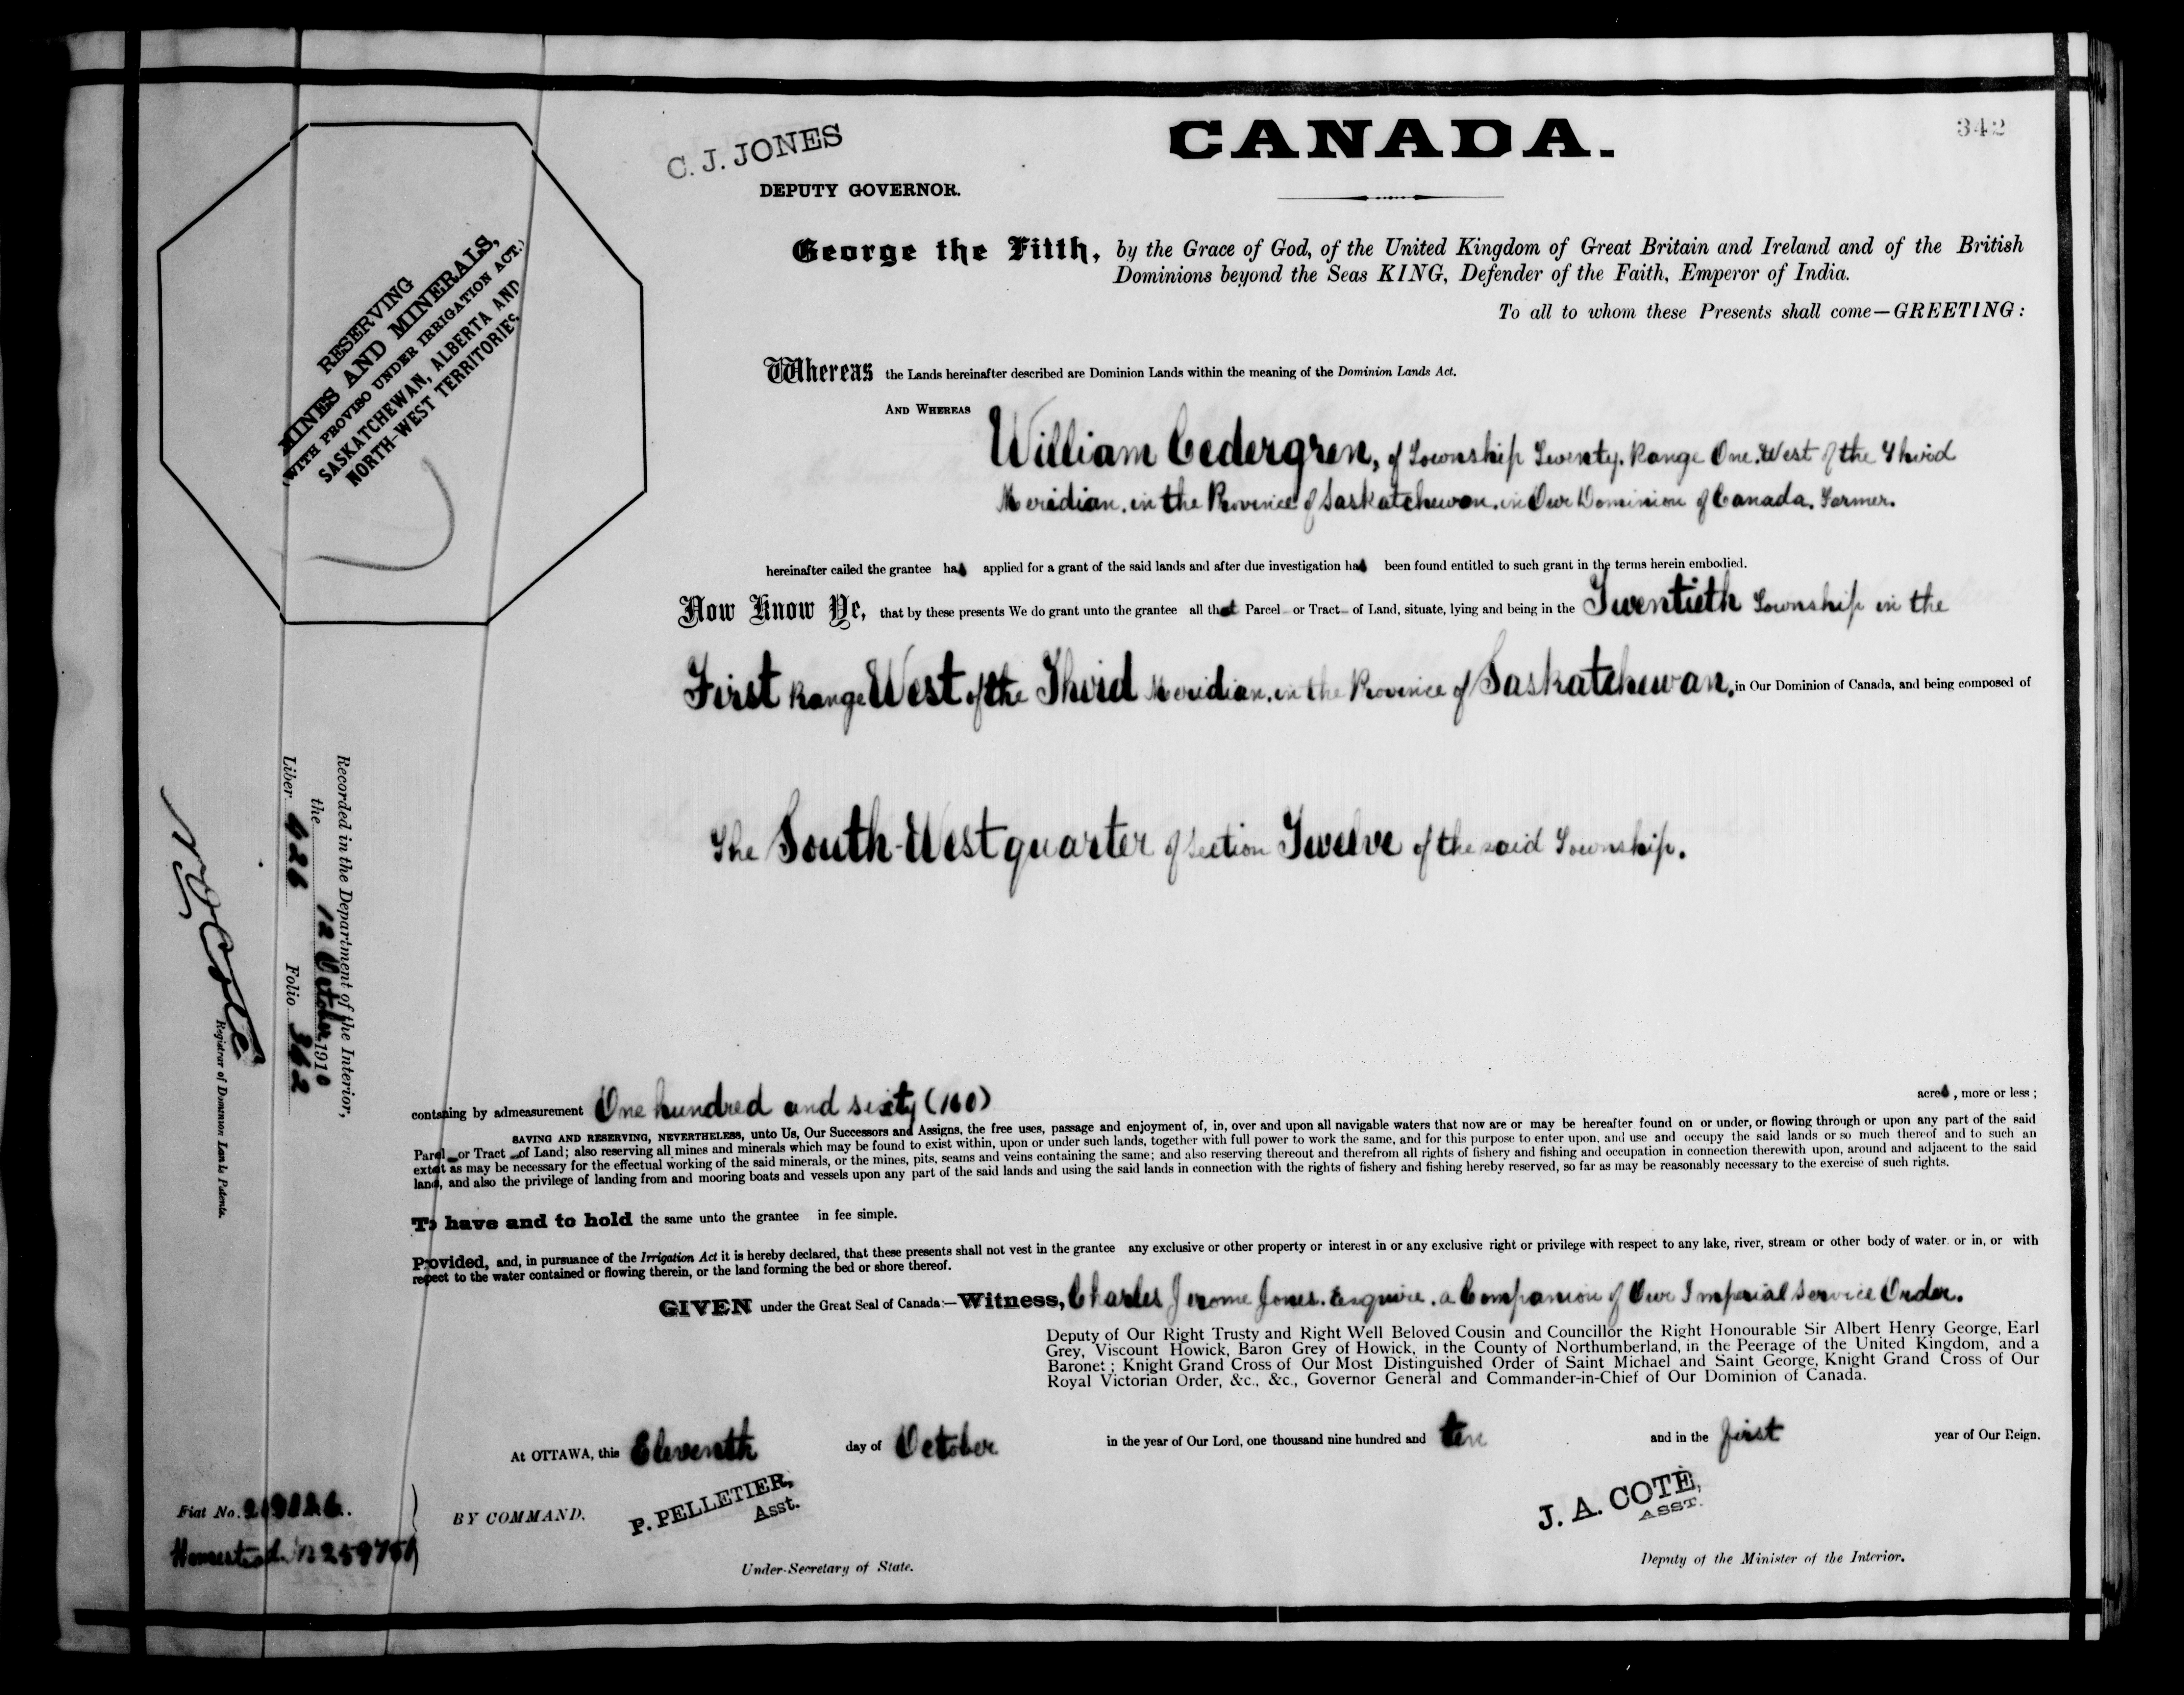 CANADA.
342
C. J. JONES
DEPUTY GOVERNOR.
George the Fifth, by the Grace of God, of the United Kingdom of Great Britain and Ireland and of the British
Dominions beyond the Seas KING, Defender of the Faith, Emperor of India.
To all to whom these Presents shall come—GREETING:
RESERVING
MINES AND MINERALS,
(WITH PROVISO UNDER IRRIGATION ACT.)
SASKATCHEWAN, ALBERTA AND
NORTH-WEST TERRITORIES
Whereas the Lands hereinafter described are Dominion Lands within the meaning of the Dominion Lands Act.
AND WHEREAS
William Cedergren, of Township Twenty, Range One, West of the Third
Meridian, in the Province of Saskatchewan, in Our Dominion of Canada, Farmer.
hereinafter called the grantee has applied for a grant of the said lands and after due investigation has been found entitled to such grant in the terms herein embodied.
Now Know Ye, that by these presents We do grant unto the grantee all that Parcel or Tract of Land, situate, lying and being in the Twentieth Township in the
First Range West of the Third Meridian, in the Province of Saskatchewan, in Our Dominion of Canada, and being composed of
The South-West quarter of Section Twelve of the said Township.
Recorded in the Department of the Interior,
the 12 October 1910
Liber 626 Folio 342
N O Coté
Registrar of Dominion Lands Patents.
containing by admeasurement One hundred and sixty (160) acres, more or less;
SAVING AND RESERVING, NEVERTHELESS, unto Us, Our Successors and Assigns, the free uses, passage and enjoyment of, in, over and upon all navigable waters that now are or may be hereafter found on or under, or flowing through or upon any part of the said
Parcel or Tract of Land; also reserving all mines and minerals which may be found to exist within, upon or under such lands, together with full power to work the same, and for this purpose to enter upon, and use and occupy the said lands or so much thereof and to such an
extent as may be necessary for the effectual working of the said minerals, or the mines, pits, seams and veins containing the same; and also reserving thereout and therefrom all rights of fishery and fishing and occupation in connection therewith upon, around and adjacent to the said
lands, and also the privilege of landing from and mooring boats and vessels upon any part of the said lands and using the said lands in connection with the rights of fishery and fishing hereby reserved, so far as may be reasonably necessary to the exercise of such rights.
To have and to hold the same unto the grantee in fee simple.
Provided, and, in pursuance of the Irrigation Act it is hereby declared, that these presents shall not vest in the grantee any exclusive or other property or interest in or any exclusive right or privilege with respect to any lake, river, stream or other body of water. or in, or with
respect to the water contained or flowing therein, or the land forming the bed or shore thereof.
GIVEN under the Great Seal of Canada:—Witness, Charles Jerome Jones, Esquire, a Companion of Our Imperial Service Order.
Deputy of Our Right Trusty and Right Well Beloved Cousin and Councillor the Right Honourable Sir Albert Henry George, Earl
Grey, Viscount Howick, Baron Grey of Howick, in the County of Northumberland, in the Peerage of the United Kingdom, and a
Baronet; Knight Grand Cross of Our Most Distinguished Order of Saint Michael and Saint George, Knight Grand Cross of Our
Royal Victorian Order, &c., &c., Governor General and Commander-in-Chief of Our Dominion of Canada.
At OTTAWA, this Eleventh day of October in the year of Our Lord, one thousand nine hundred and ten and in the first year of Our Reign.
Fiat No.
Homestead
BY COMMAND.
P. PELLETIER,
Asst.
Under-Secretary of State.
J. A. COTÉ,
ASST.
Deputy of the Minister of the Interior.